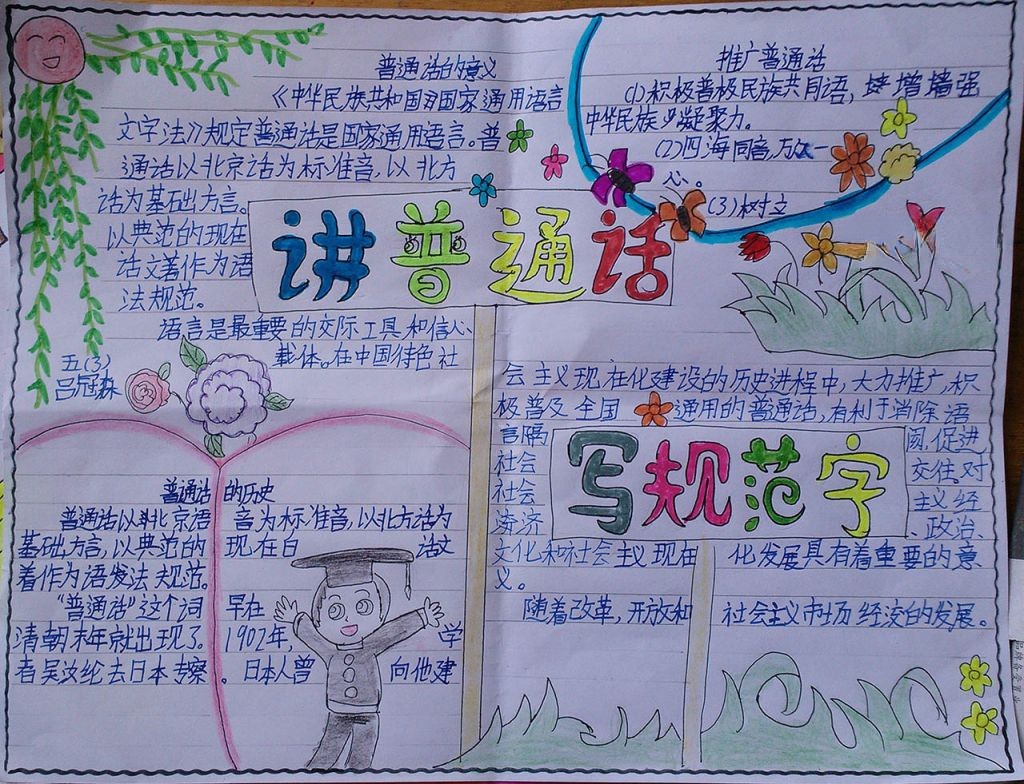 普通话的意义
《中华民族共和国国家通用语言
文字法》规定普通话是国家通用语言。普
通话以北京话为标准音,以北方
话为基础方言。
以典范的现在
话文著作为语
法规范。
讲普通话
推广普通话
(1)积极普极民族共同语,增墙强
中华民族凝聚力。
(2)四海同音,万众一
心。
(3)树立
语言是最重要的交际工具和信人、
载体。在中国特色社
五(3)
吕冠森
会主义现在化建设的历史进程中,大力推广,积
极普及全国通用的普通话,有利于消除语
言隔阂,促进
社会交往,对
社会主义经
济济、政治、
写规范字
文化和社会主义现在化发展具有着重要的意
义。
随着改革,开放和社会主义市场经济的发展。
普通话的历史
普通话以北京语音为标准音,以北方话为
基础方言,以典范的现在白话文
着作为语发法规范。
“普通话”这个词早在
清朝末年就出现了。1902年,学
者吴汝纶去日本专察。日本人曾向他建